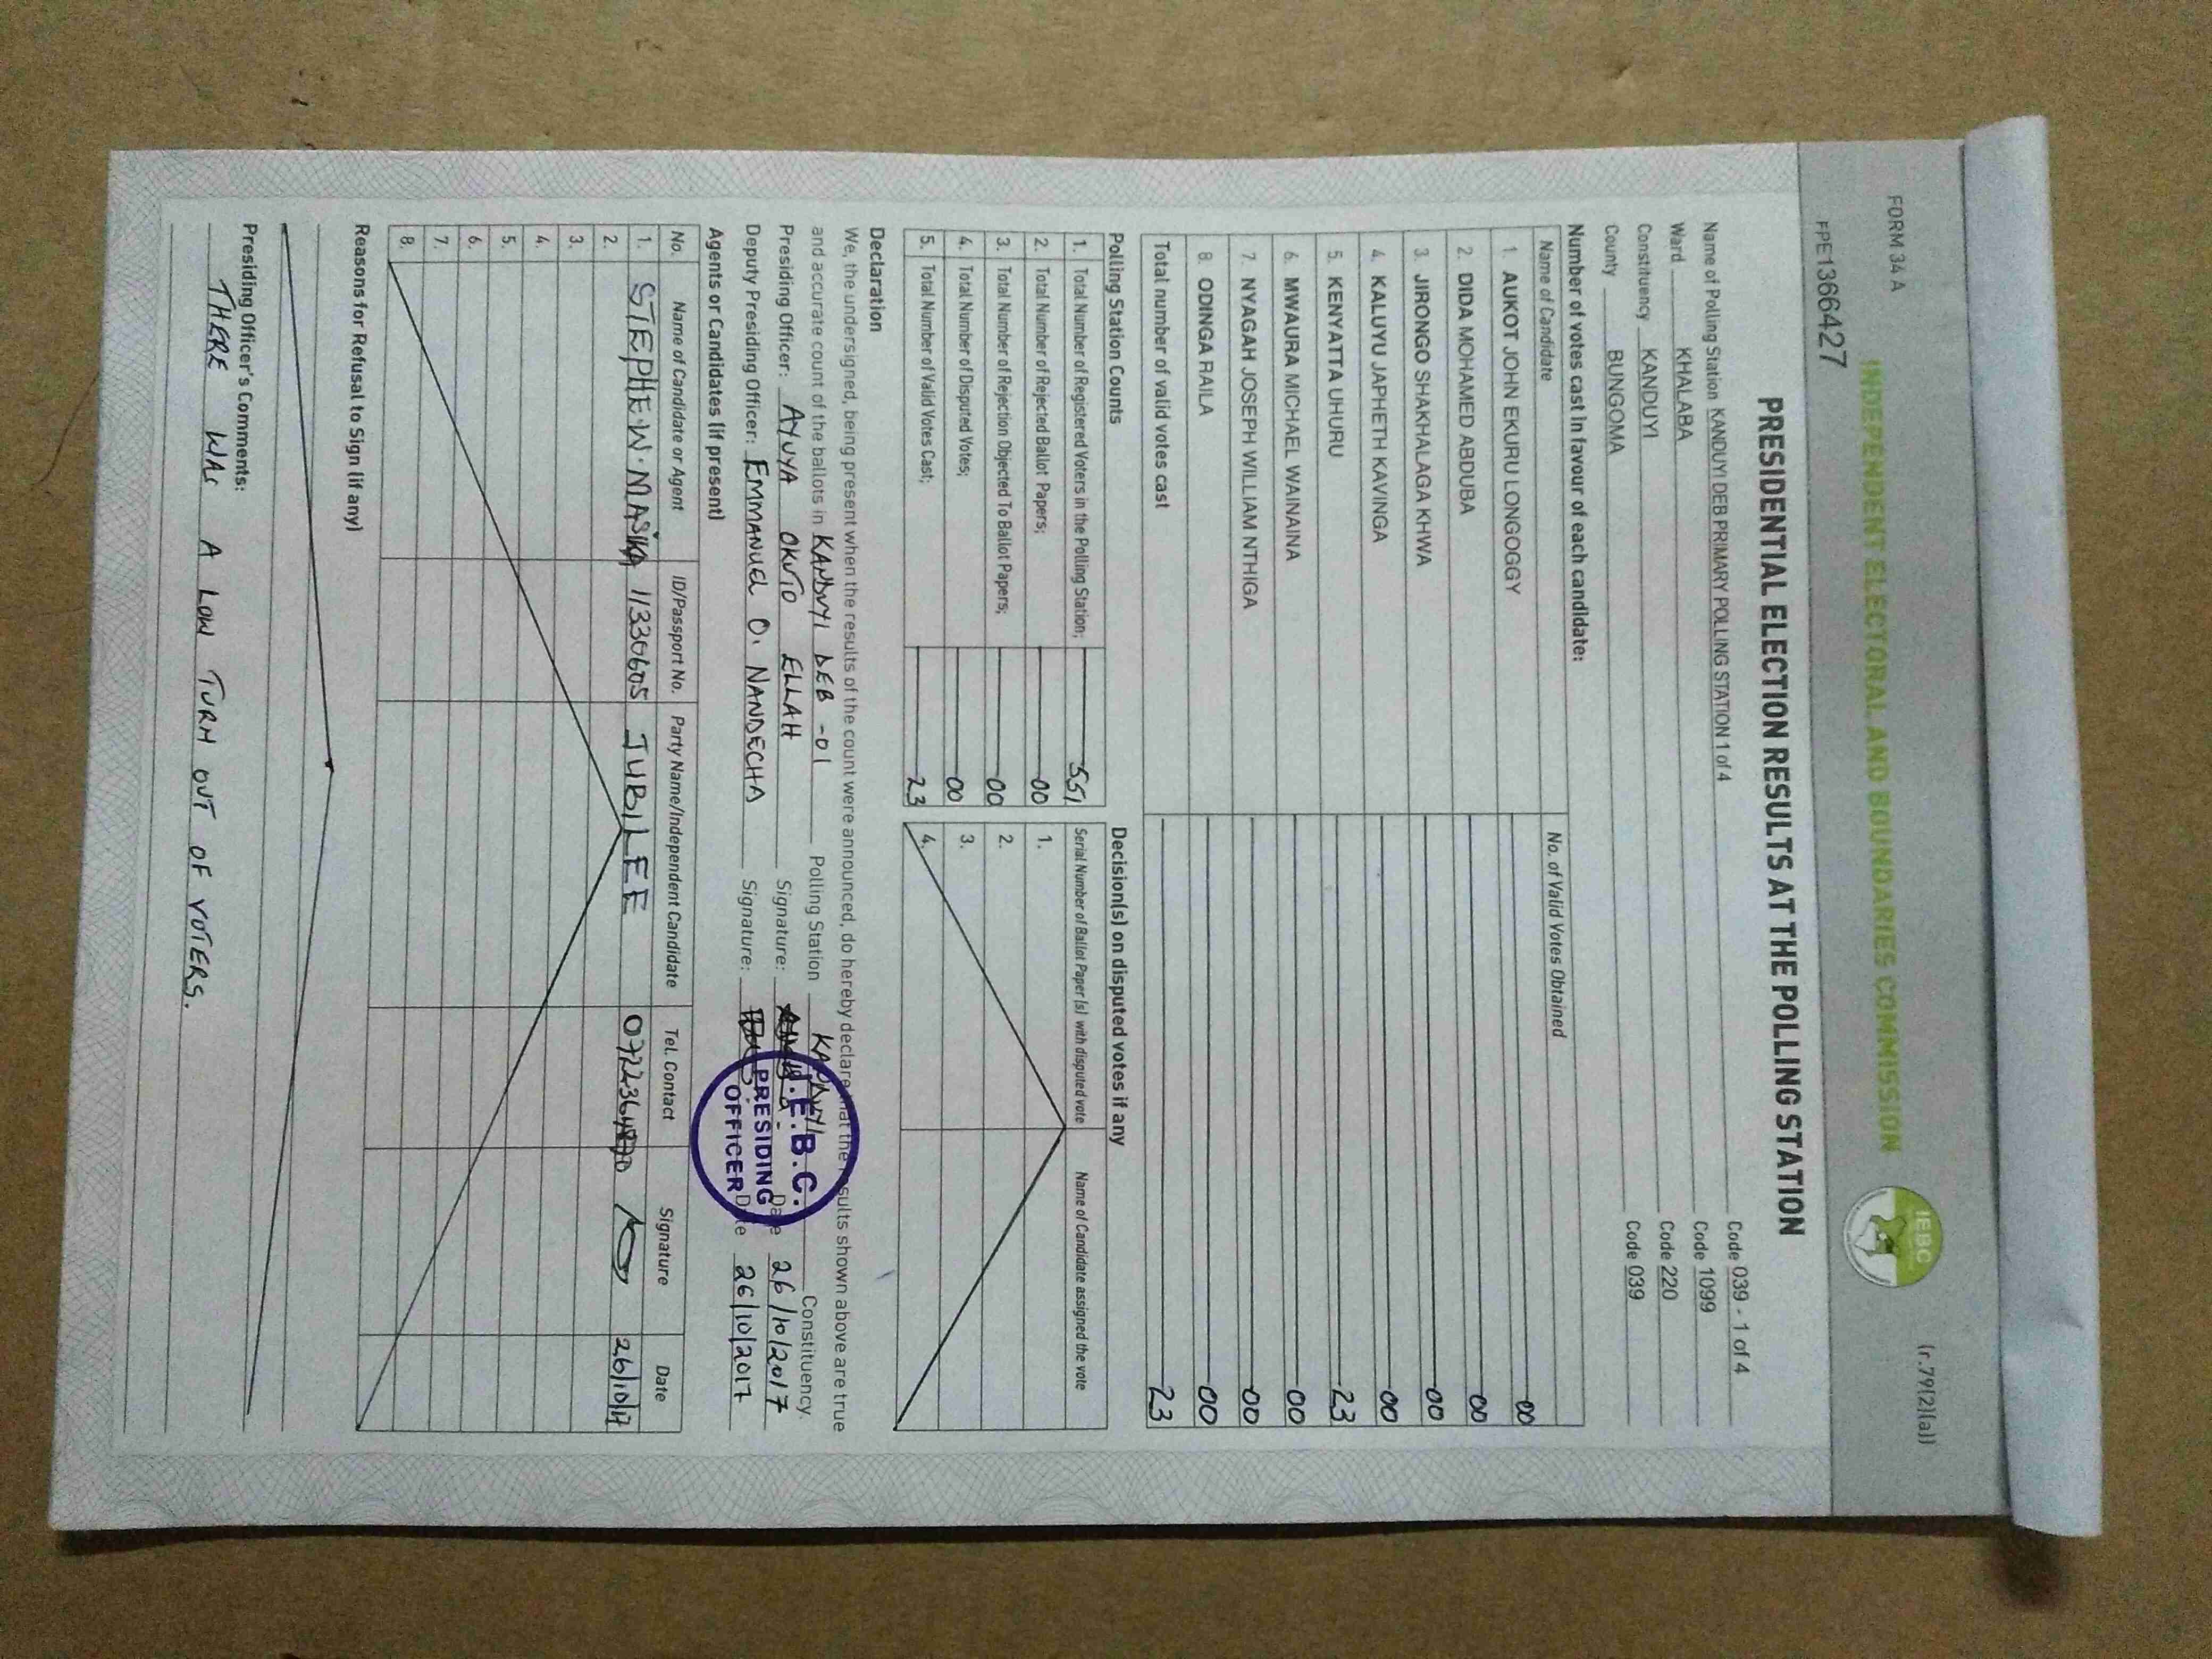 FORM 34 A
(r.79(2)(a))
INDEPENDENT ELECTORAL AND BOUNDARIES COMMISSION
IEBC
FPE1366427
PRESIDENTIAL ELECTION RESULTS AT THE POLLING STATION
Name of Polling Station KANDUYI DEB PRIMARY POLLING STATION 1 of 4 Code 039 - 1 of 4
Ward KHALABA Code 1099
Constituency KANDUYI Code 220
County BUNGOMA Code 039
Number of votes cast in favour of each candidate:
Name of Candidate No. of Valid Votes Obtained
1. AUKOT JOHN EKURU LONGOGGY 00
2. DIDA MOHAMED ABDUBA 00
3. JIRONGO SHAKHALAGA KHWA 00
4. KALUYU JAPHETH KAVINGA 00
5. KENYATTA UHURU 23
6. MWAURA MICHAEL WAINAINA 00
7. NYAGAH JOSEPH WILLIAM NTHIGA 00
8. ODINGA RAILA 00
Total number of valid votes cast 23
Polling Station Counts
1. Total Number of Registered Voters in the Polling Station; 551
2. Total Number of Rejected Ballot Papers; 00
3. Total Number of Rejection Objected To Ballot Papers; 00
4. Total Number of Disputed Votes; 00
5. Total Number of Valid Votes Cast; 23
Decision(s) on disputed votes if any
Serial Number of Ballot Paper (s) with disputed vote Name of Candidate assigned the vote
1.
2.
3.
4.
Declaration
We, the undersigned, being present when the results of the count were announced, do hereby declare that the results shown above are true
and accurate count of the ballots in KANDUYI DEB -01 Polling Station KANDUYI Constituency.
Presiding Officer: AYUYA OKUTO ELLAH Signature: Date 26/10/2017
Deputy Presiding Officer: EMMANUEL O. NANDECHA Signature: Date 26/10/2017
I.E.B.C.
PRESIDING
OFFICER
Agents or Candidates (if present)
No. Name of Candidate or Agent ID/Passport No. Party Name/Independent Candidate Tel. Contact Signature Date
1. STEPHEN W. MASIKA 11330605 JUBILEE 26/10/17
2.
3.
4.
5.
6.
7.
8.
Reasons for Refusal to Sign (if any)
Presiding Officer's Comments:
THERE WAS A LOW TURN OUT OF VOTERS.